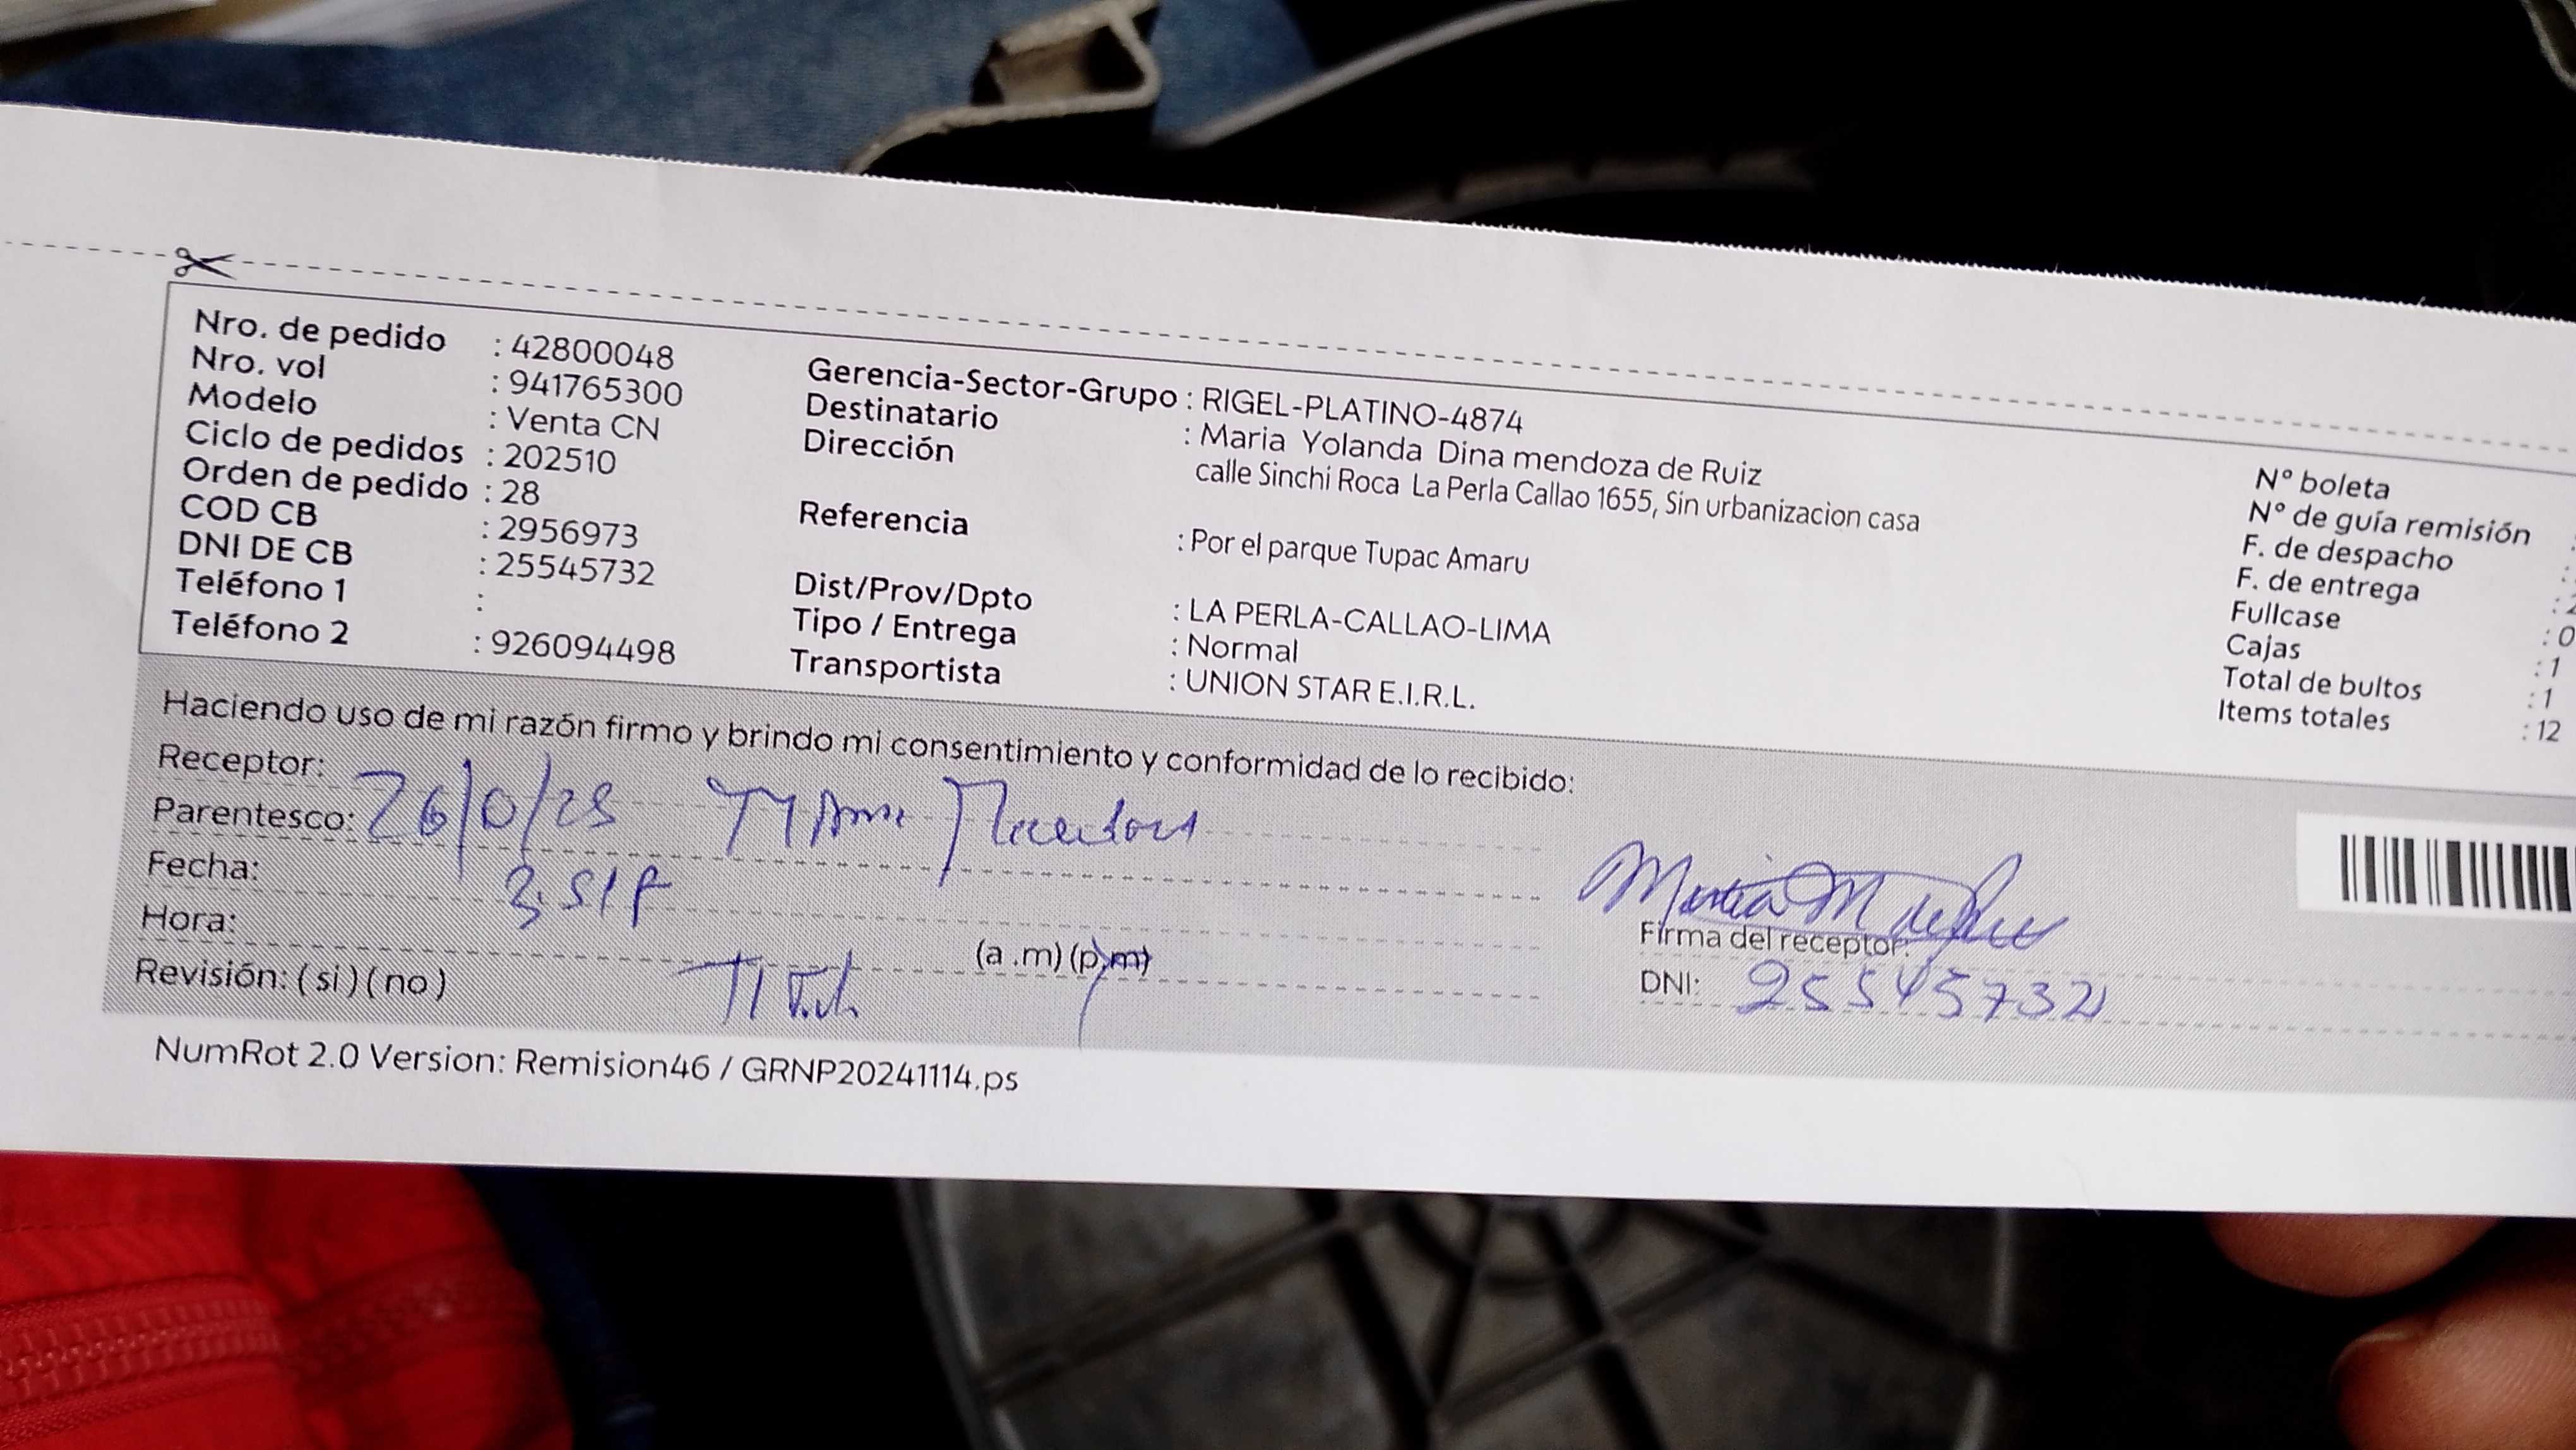 Nro. de pedido : 42800048
Nro. vol : 941765300
Modelo : Venta CN
Ciclo de pedidos : 202510
Orden de pedido : 28
COD CB : 2956973
DNI DE CB : 25545732
Teléfono 1 :
Teléfono 2 : 926094498
Gerencia-Sector-Grupo : RIGEL-PLATINO-4874
Destinatario : Maria Yolanda Dina mendoza de Ruiz
Dirección calle Sinchi Roca La Perla Callao 1655, Sin urbanizacion casa
Referencia : Por el parque Tupac Amaru
Dist/Prov/Dpto : LA PERLA-CALLAO-LIMA
Tipo / Entrega : Normal
Transportista : UNION STAR E.I.R.L.
N° boleta
N° de guía remisión :
F. de despacho :
F. de entrega : 2
Fullcase : 0
Cajas : 1
Total de bultos : 1
Items totales : 12
Haciendo uso de mi razón firmo y brindo mi consentimiento y conformidad de lo recibido:
Receptor:
Parentesco:
Fecha:
Hora: (a .m) (p.m)
Revisión: ( si ) ( no )
Firma del receptor:
DNI: 25545732
NumRot 2.0 Version: Remision46 / GRNP20241114.ps